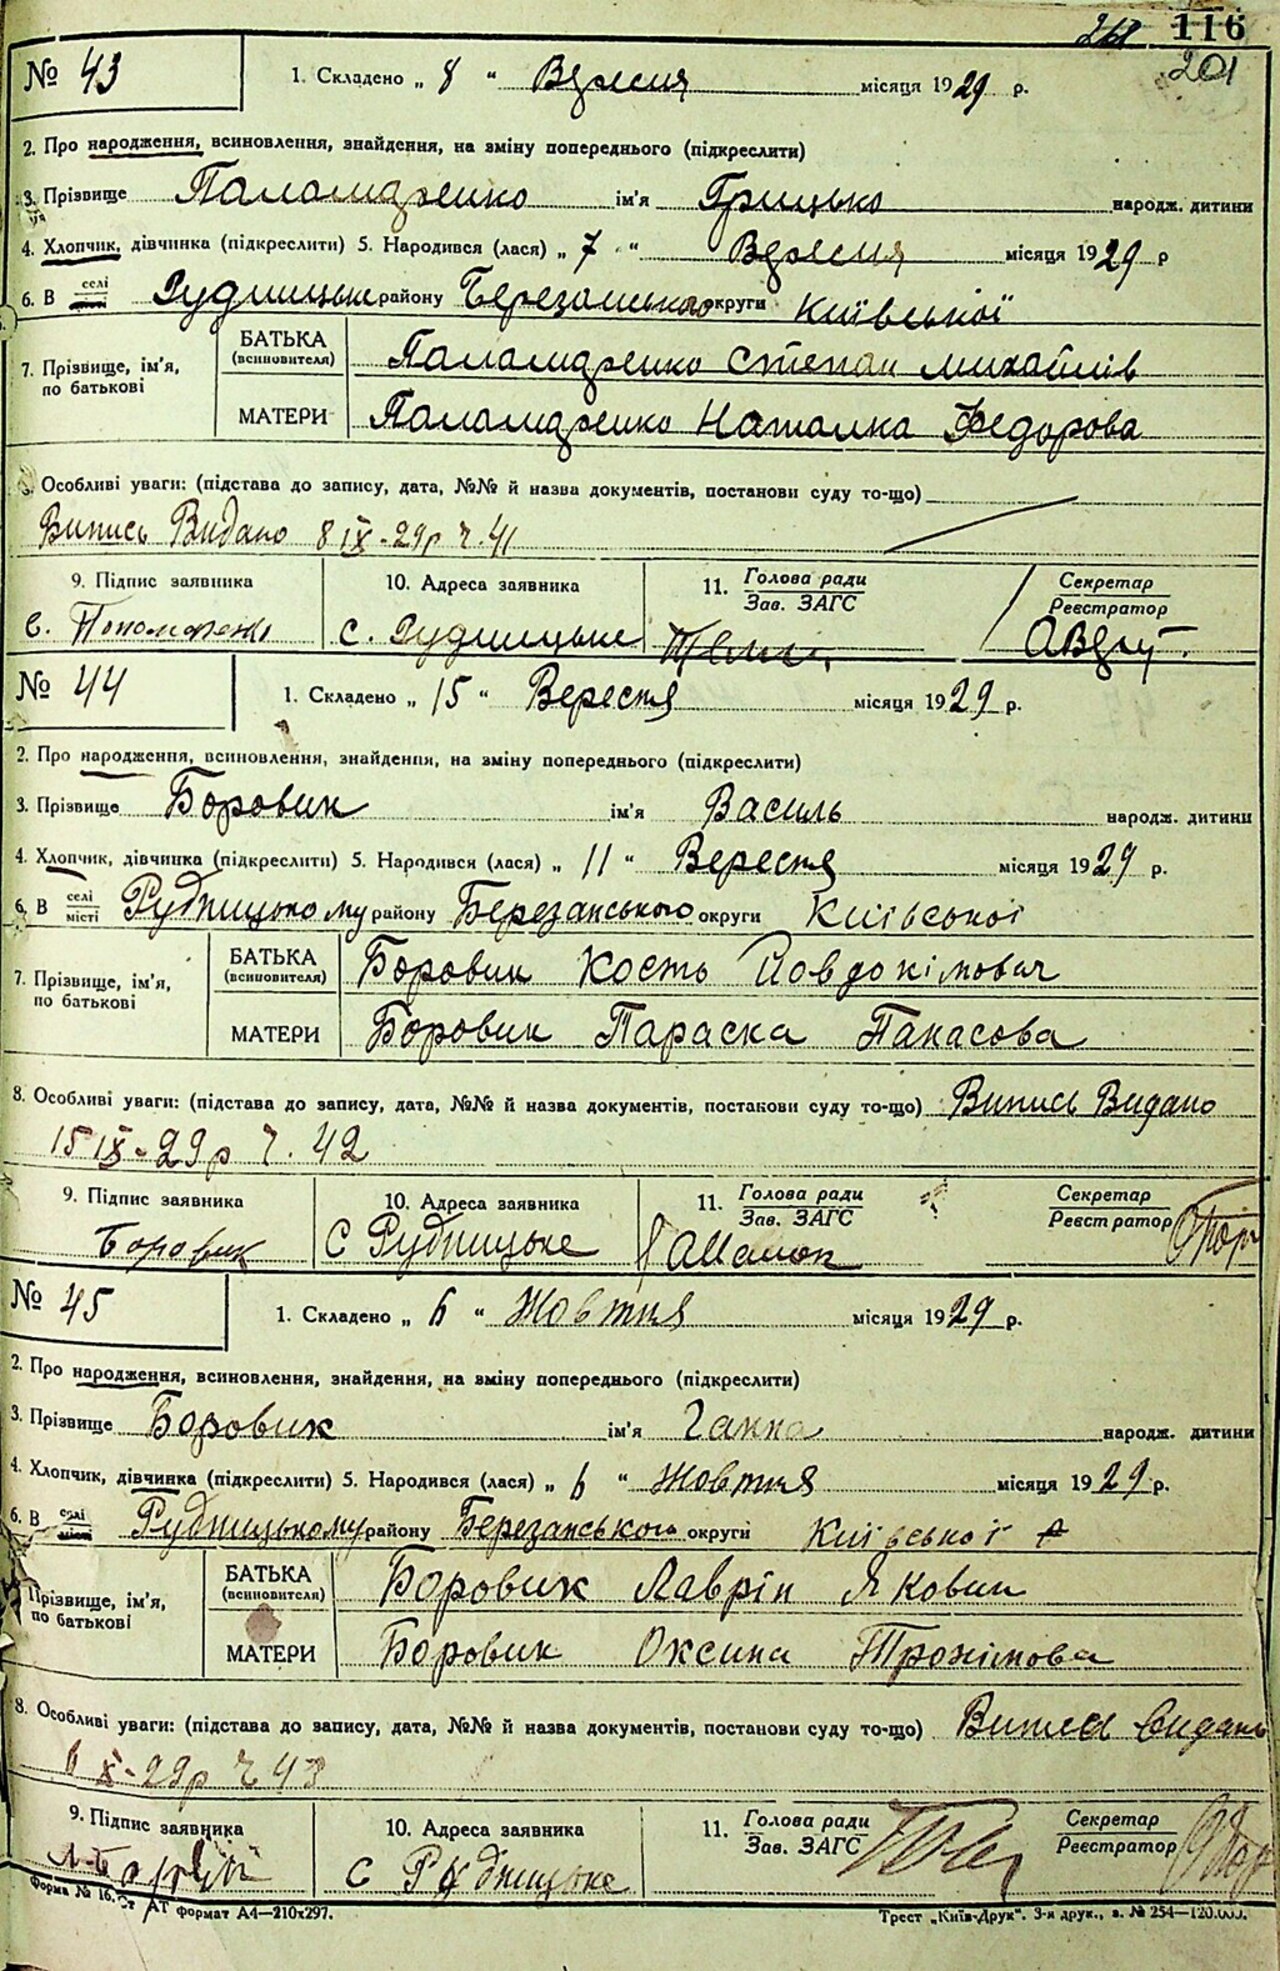 116
201
№ 43 1. Складено „ 8 “ Вересня місяця 1929 р.
2. Про народження, всиновлення, знайдення, на зміну попереднього (підкреслити)
3. Прізвище Паламаренко ім'я Грицько народж. дитини
4. Хлопчик, дівчинка (підкреслити) 5. Народився (лася) „ 7 “ Вересня місяця 1929 р
6. В селі Рудницьке району Березанського округи Київської
7. Прізвище, ім'я, по батькові БАТЬКА (всиновителя) Паламаренко Степан Михайлів
МАТЕРИ Паламаренко Наталка Федорова
Особливі уваги: (підстава до запису, дата, №№ й назва документів, постанови суду то-що)
Випись Видано 8 IX-29р ч. 41
9. Підпис заявника 10. Адреса заявника 11. Голова ради Зав. ЗАГС Секретар Реєстратор
с. Рудницьке
№ 44 1. Складено „ 15 “ Вересня місяця 1929 р.
2. Про народження, всиновлення, знайдення, на зміну попереднього (підкреслити)
3. Прізвище Боровик ім'я Василь народж. дитини
4. Хлопчик, дівчинка (підкреслити) 5. Народився (лася) „ 11 “ Вересня місяця 1929 р.
6. В селі місті Рудницькому району Березанського округи Київської
7. Прізвище, ім'я, по батькові БАТЬКА (всиновителя) Боровик Кость Йовдокімович
МАТЕРИ Боровик Параска Панасова
8. Особливі уваги: (підстава до запису, дата, №№ й назва документів, постанови суду то-що) Випись Видано
15 IX-29р ч. 42
9. Підпис заявника 10. Адреса заявника 11. Голова ради Зав. ЗАГС Секретар Реєстратор
Боровик С Рудницьке
№ 45 1. Складено „ 6 “ Жовтня місяця 1929 р.
2. Про народження, всиновлення, знайдення, на зміну попереднього (підкреслити)
3. Прізвище Боровик ім'я Ганна народж. дитини
4. Хлопчик, дівчинка (підкреслити) 5. Народився (лася) „ 6 “ Жовтня місяця 1929 р.
6. В селі Рудницькому району Березанського округи Київської
Прізвище, ім'я, по батькові БАТЬКА (всиновителя) Боровик Лаврін Якович
МАТЕРИ Боровик Оксана Трохімова
8. Особливі уваги: (підстава до запису, дата, №№ й назва документів, постанови суду то-що) Випись видано
6 X-29р ч 43
9. Підпис заявника 10. Адреса заявника 11. Голова ради Зав. ЗАГС Секретар Реєстратор
с Рудницьке
Форма № 16. Ст АТ формат А4—210х297. Трест „Київ-Друк“. 3-я друк., з. № 254—120.000.